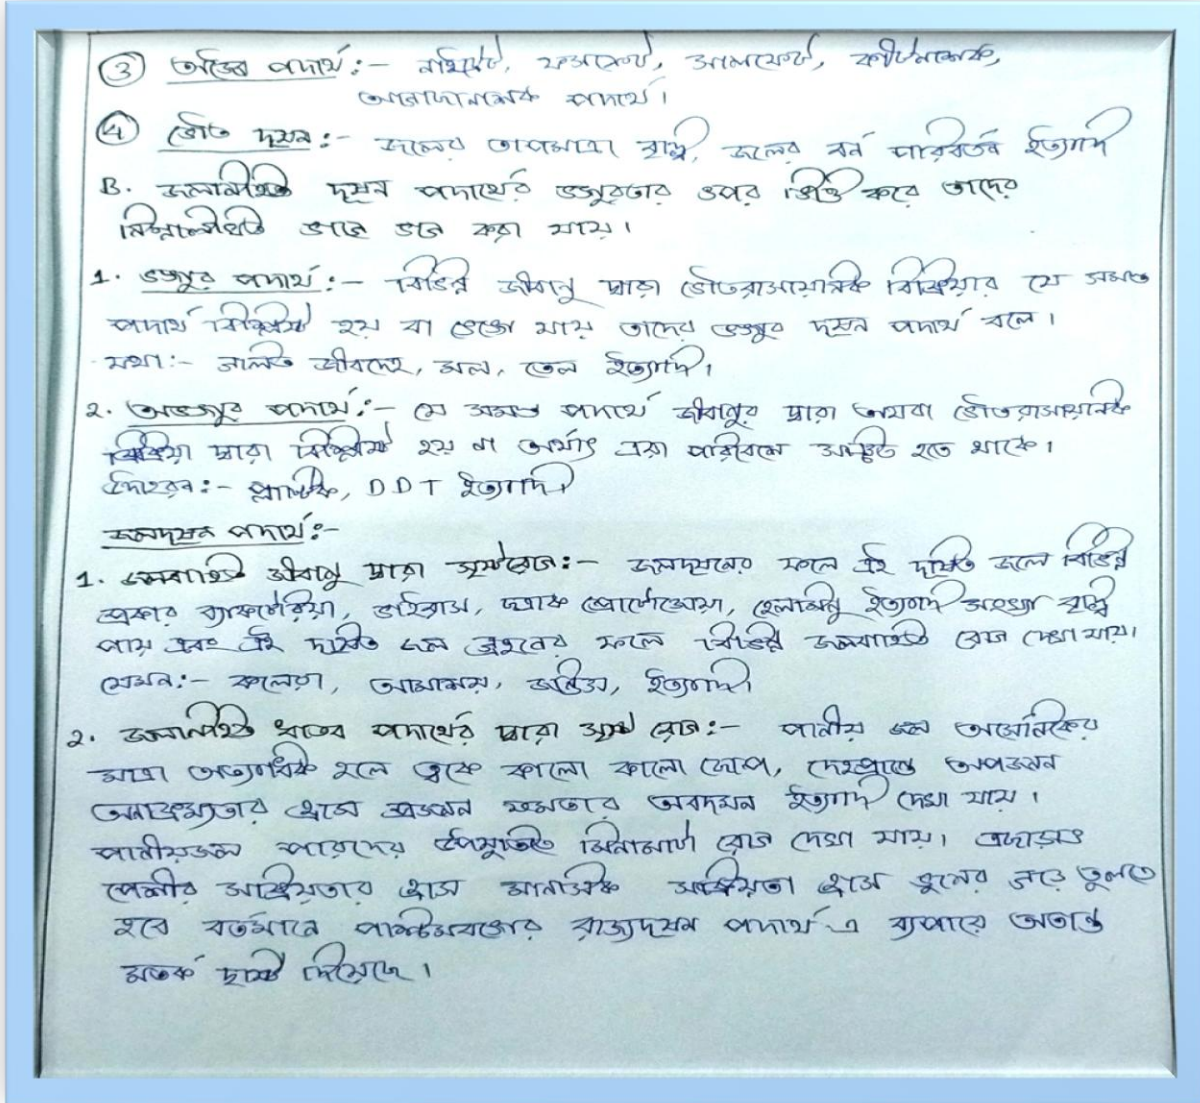 ③ অজৈব পদার্থ :- নাইট্রেট, ফসফেট, সালফেট, কীটনাশক,
আগাছানাশক পদার্থ।
④ ভৌত দূষন :- জলের তাপমাত্রা বৃদ্ধি, জলের বর্ন পরিবর্তন ইত্যাদি
B. জলনিহিত দূষন পদার্থের ভঙ্গুরতার ওপর ভিত্তি করে তাদের
নিম্নলিখিত ভাগে ভাগ করা যায়।
1. ভঙ্গুর পদার্থ :- বিভিন্ন জীবানু দ্বারা ভৌতরাসায়নিক বিক্রিয়ার যে সমস্ত
পদার্থ বিশ্লিষ্ট হয় বা ভেঙ্গে যায় তাদের ভঙ্গুর দূষন পদার্থ বলে।
যথা :- গলিত জীবদেহ, মল, তেল ইত্যাদি।
২. অভঙ্গুর পদার্থ :- যে সমস্ত পদার্থ জীবানুর দ্বারা অথবা ভৌতরাসায়নিক
বিক্রিয়া দ্বারা বিশ্লিষ্ট হয় না অর্থাৎ এরা পরিবেশে সঞ্চিত হতে থাকে।
উদাহরন :- প্লাস্টিক, DDT ইত্যাদি।
জলদূষন পদার্থ :-
1. জলবাহিত জীবানু দ্বারা সৃষ্টরোগ :- জলদূষনের ফলে এই দূষিত জলে বিভিন্ন
প্রকার ব্যাকটেরিয়া, ভাইরাস, ছত্রাক প্রোটোজোয়া, হেলমিন্থ ইত্যাদি সংখ্যা বৃদ্ধি
পায় এবং এই দূষিত জল গ্রহনের ফলে বিভিন্ন জলবাহিত রোগ দেখা যায়।
যেমন :- কলেরা, আমাশয়, জন্ডিস, ইত্যাদি।
২. জলনিহিত ধাতব পদার্থের দ্বারা সৃষ্ট রোগ :- পানীয় জল আর্সেনিকের
মাত্রা অত্যাধিক হলে ত্বকে কালো কালো ছোপ, দেহপ্রান্তে অপজনন
অনাক্রম্যতার হ্রাস প্রজনন ক্ষমতার অবদমন ইত্যাদি দেখা যায়।
পানীয়জল পারদের উপস্থিতি মিনামাটা রোগ দেখা যায়। এছাড়াও
পেশীর সক্রিয়তার হ্রাস মানসিক সক্রিয়তা হ্রাস গড়ে তুলতে
হবে বর্তমানে পশ্চিমবঙ্গের রাজ্যদূষন পদার্থ এ ব্যাপারে অত্যন্ত
সতর্ক দৃষ্টি দিয়েছে।